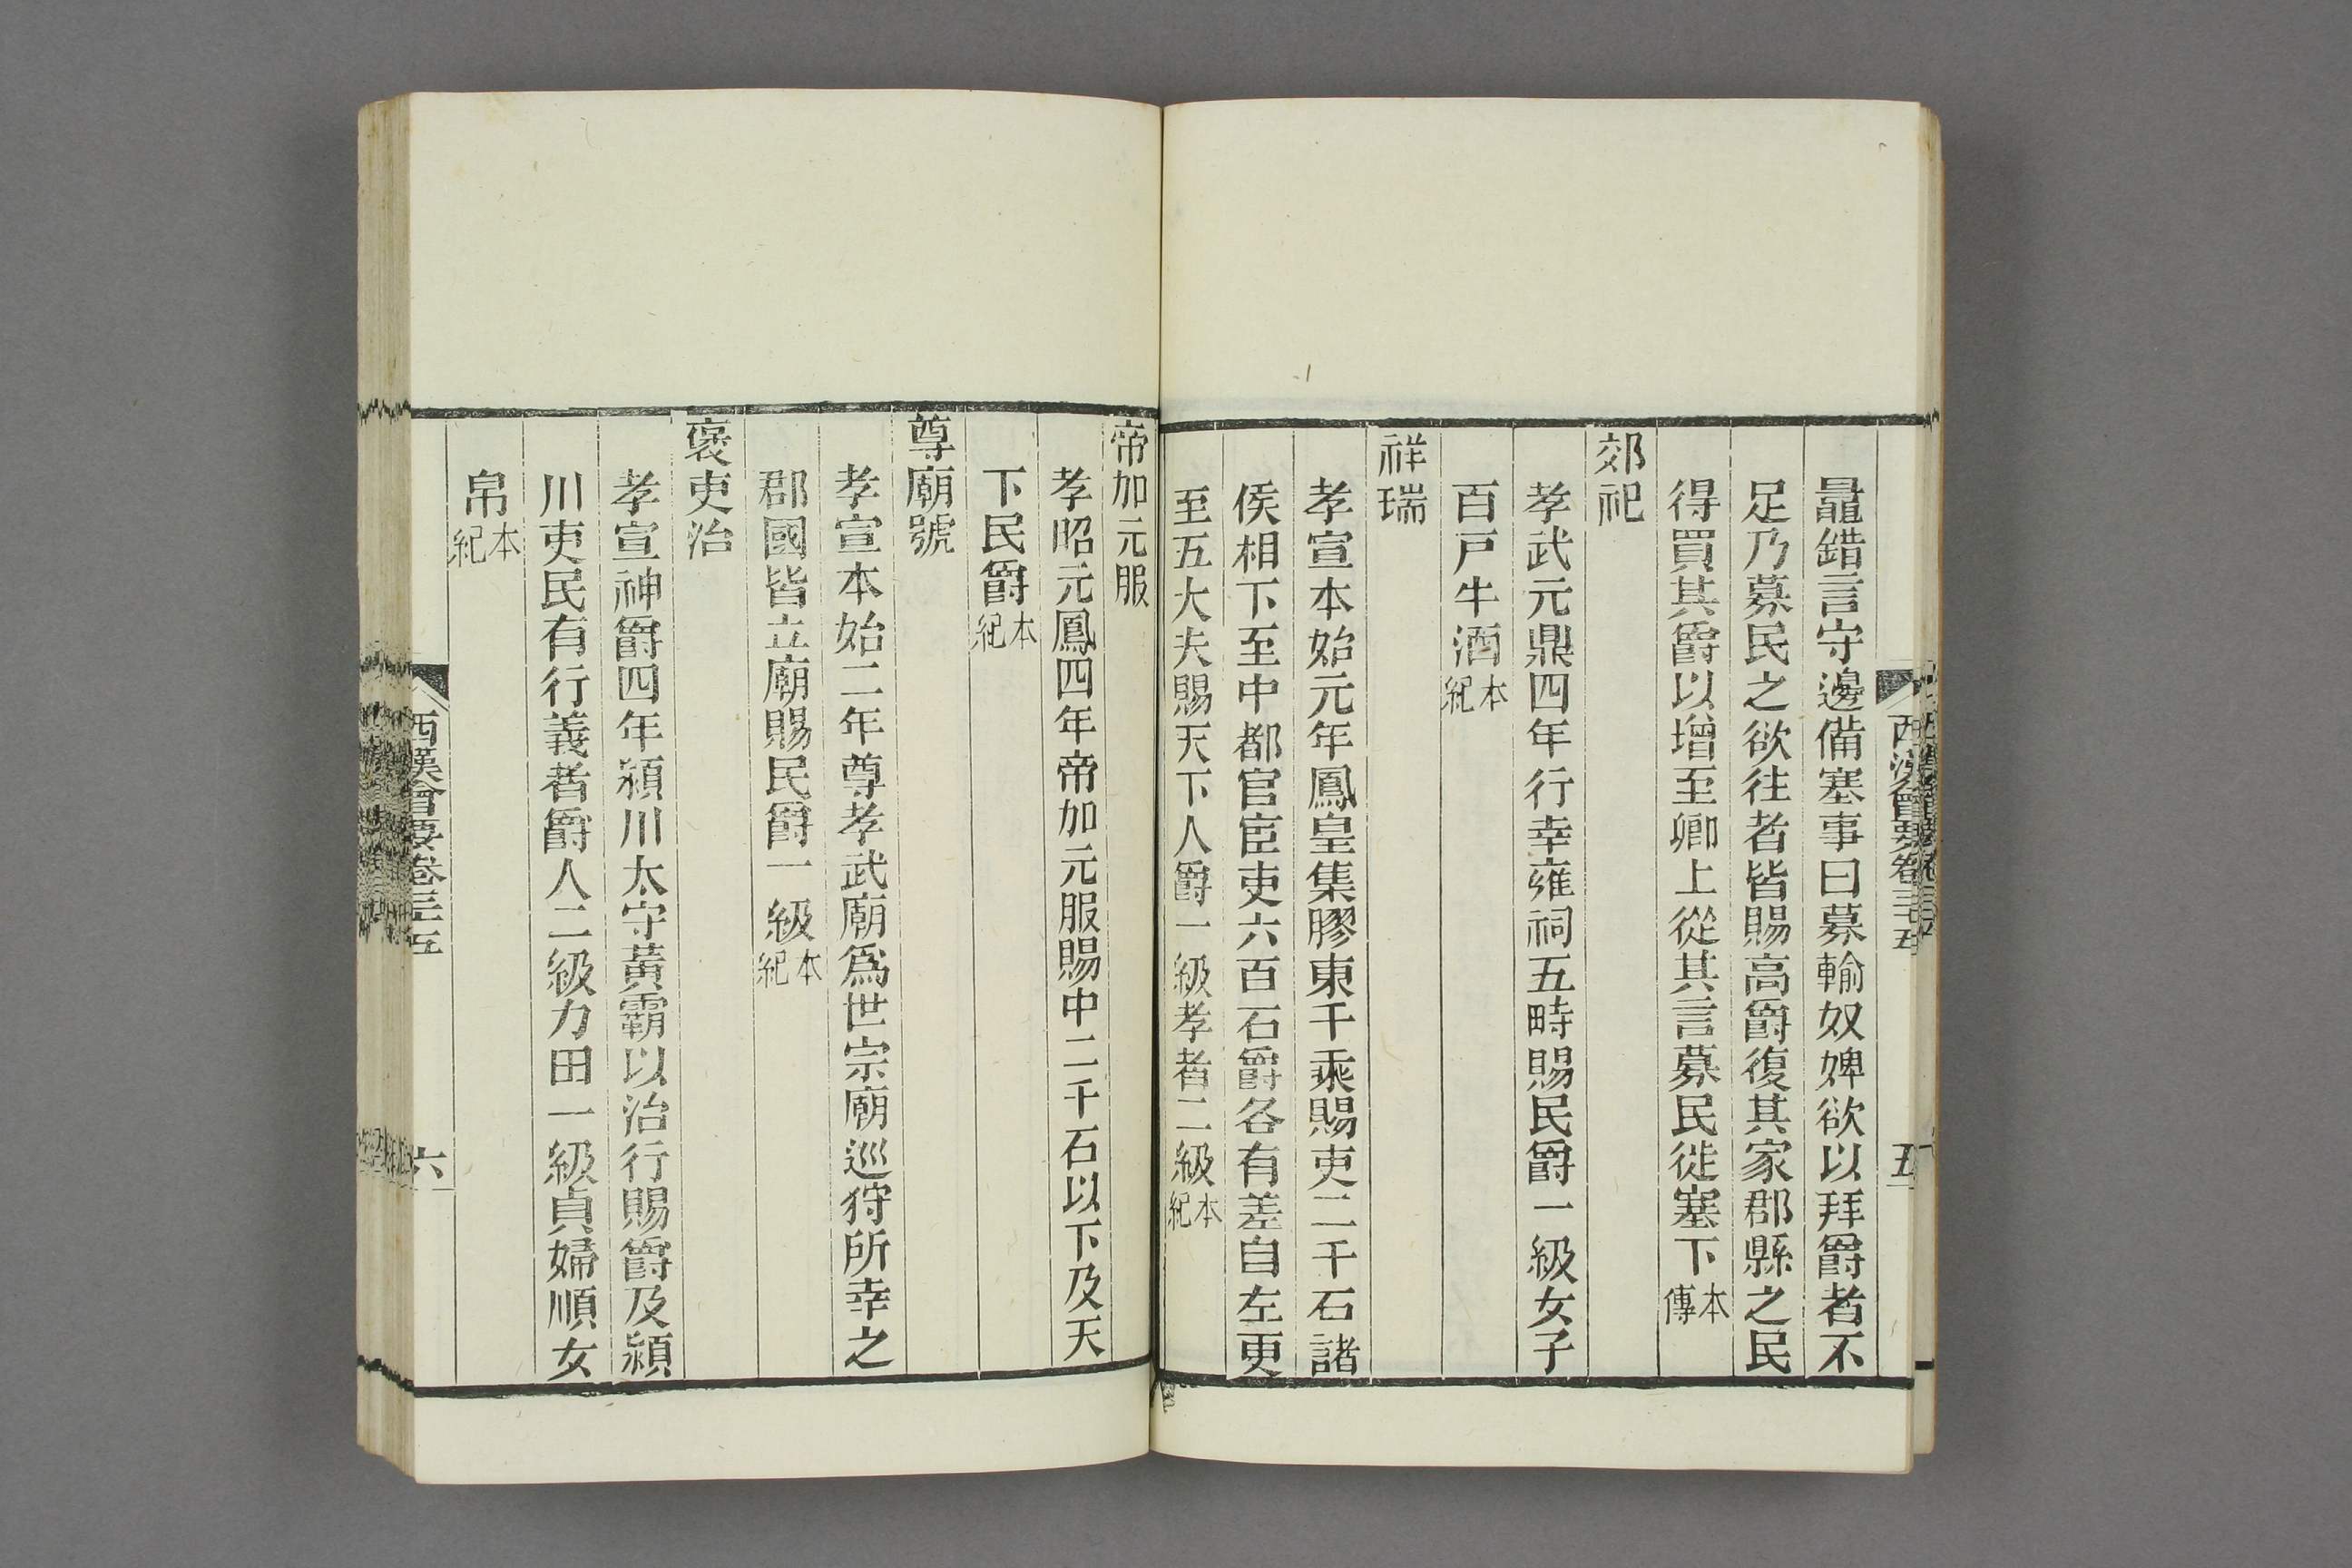 西漢會要卷三十五
五
鼂錯言守邊備塞事曰募輸奴婢欲以拜爵者不
足乃募民之欲往者皆賜高爵復其家郡縣之民
得買其爵以增至卿上從其言募民徙塞下本傳
郊祀
孝武元鼎四年行幸雍祠五畤賜民爵一級女子
百戸牛酒本紀
祥瑞
孝宣本始元年鳳皇集膠東千乘賜吏二千石諸
侯相下至中都官宦吏六百石爵各有差自左更
至五大夫賜天下人爵一級孝者二級本紀
帝加元服
孝昭元鳳四年帝加元服賜中二千石以下及天
下民爵本紀
尊廟號
孝宣本始二年尊孝武廟爲世宗廟巡狩所幸之
郡國皆立廟賜民爵一級本紀
褒吏治
孝宣神爵四年潁川太守黃霸以治行賜爵及潁
川吏民有行義者爵人二級力田一級貞婦順女
帛本紀
西漢會要卷三十五
六